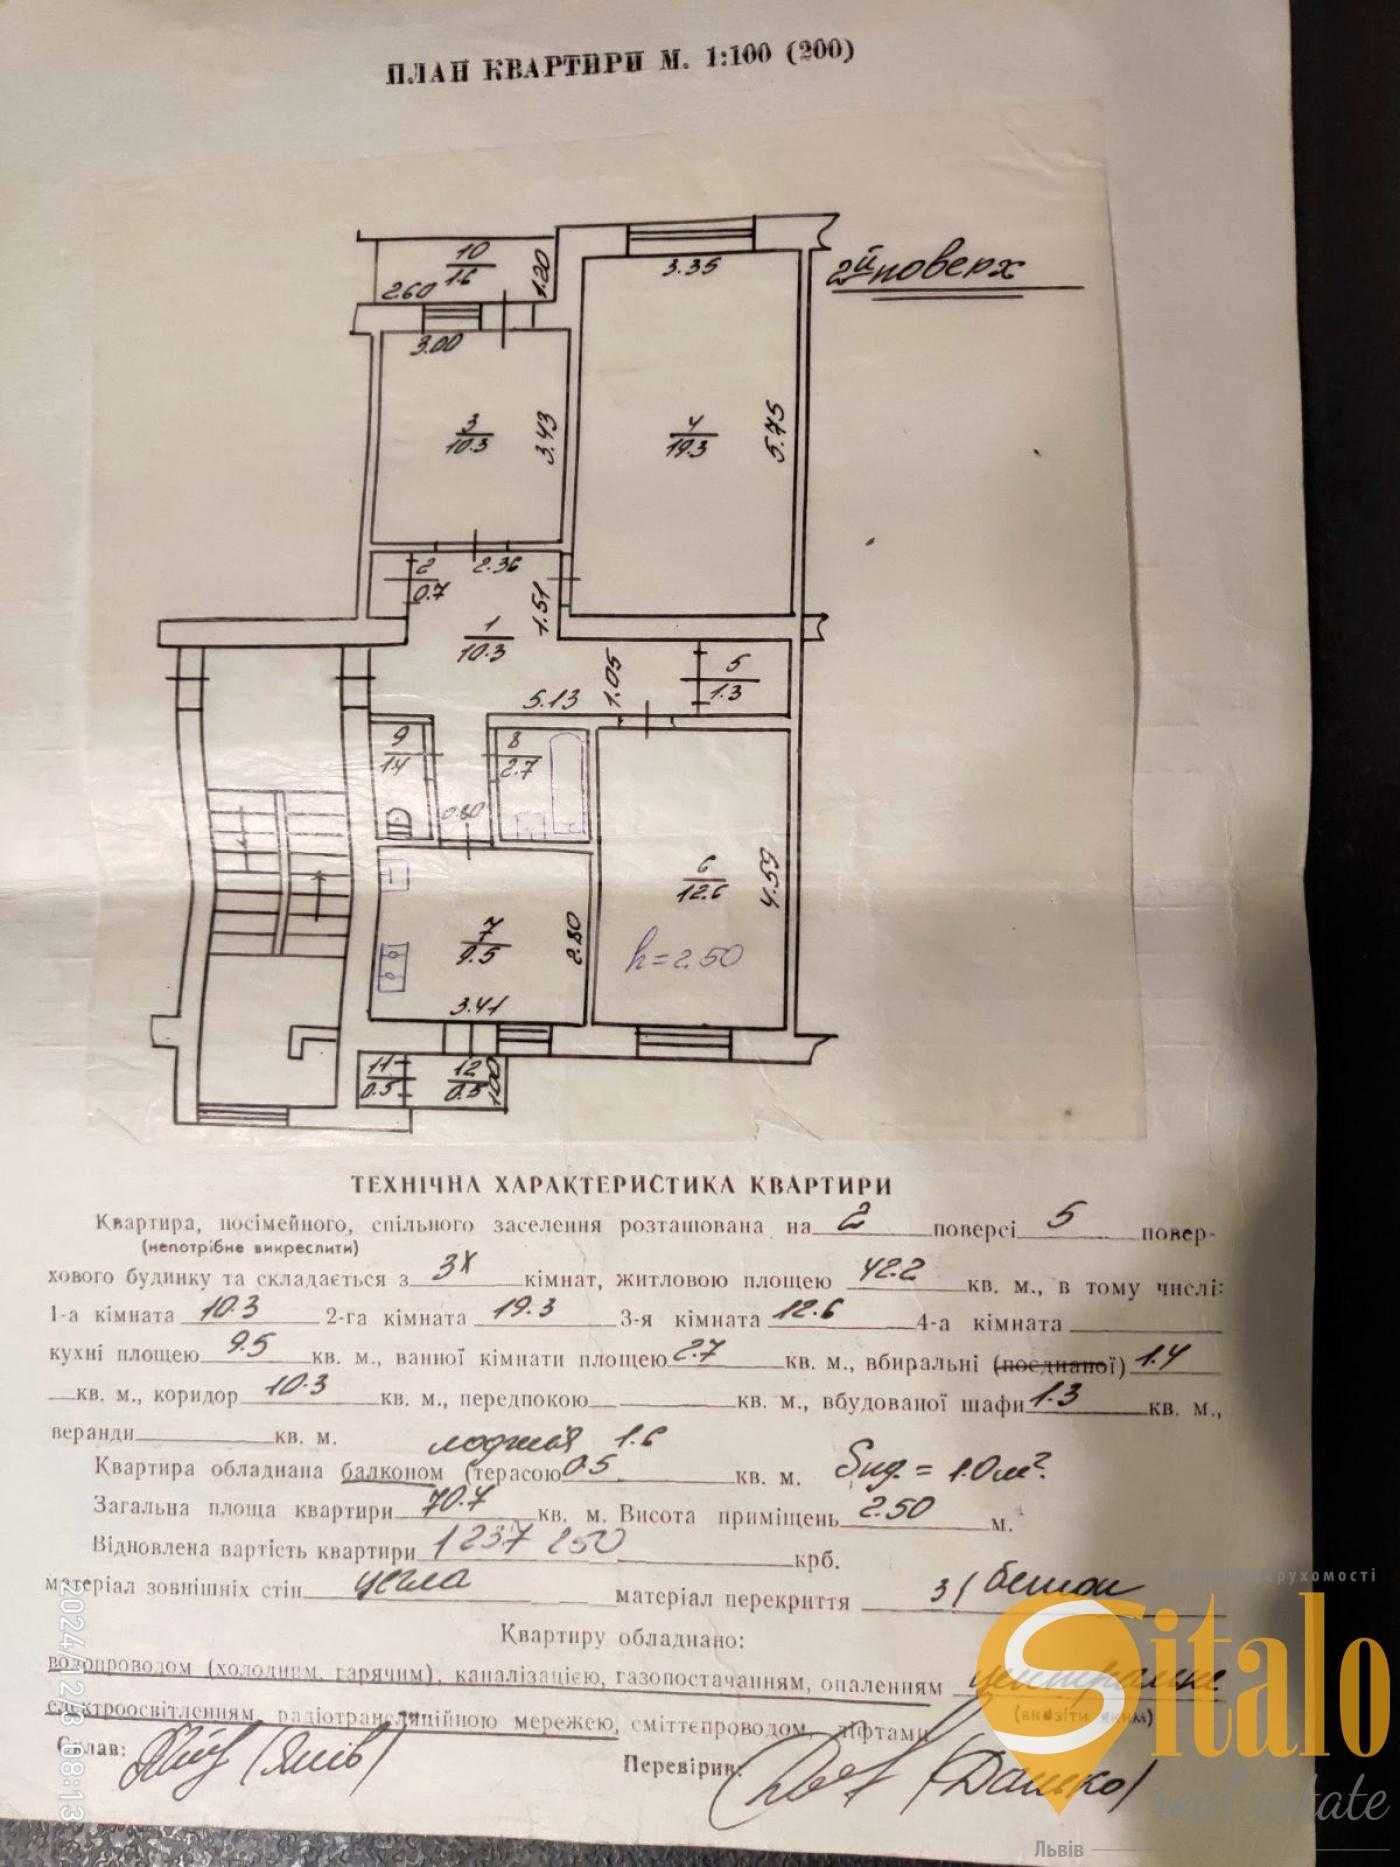 ПЛАН КВАРТИРИ М. 1:100 (200)
2й поверх
10
1.6
2.60
1.20
3.35
3.00
3
10.3
3.43
4
19.3
5.75
2
0.7
2.36
1.51
1
10.3
5
1.3
1.05
5.13
9
1.4
8
2.7
0.80
6
12.6
4.59
7
9.5
2.80
h=2.50
3.41
11
0.5
12
0.5
1.00
ТЕХНІЧНА ХАРАКТЕРИСТИКА КВАРТИРИ
Квартира, посімейного, спільного заселення розташована на 2 поверсі 5 повер-
(непотрібне викреслити)
хового будинку та складається з 3х кімнат, житловою площею 42.2 кв. м., в тому числі:
1-а кімната 10.3 2-га кімната 19.3 3-я кімната 12.6 4-а кімната
кухні площею 9.5 кв. м., ванної кімнати площею 2.7 кв. м., вбиральні (поєднаної) 1.4
кв. м., коридор 10.3 кв. м., передпокою кв. м., вбудованої шафи 1.3 кв. м.,
веранди кв. м. лоджія 1.6
Квартира обладнана балконом (терасою 0.5 кв. м. Sпід. = 1.0 м².
Загальна площа квартири 70.4 кв. м. Висота приміщень 2.50 м.
Відновлена вартість квартири 1237 250 крб.
матеріал зовнішніх стін цегла матеріал перекриття з/бетон
Квартиру обладнано:
водопроводом (холодним, гарячим), каналізацією, газопостачанням, опаленням центральне
(вказати яким)
електроосвітленням, радіотрансляційною мережею, сміттєпроводом, ліфтами
Склав: (Янів)
Перевірив: (Дашко)
2024/12/3 08:13
нерухомості
Sitalo
real estate
Львів